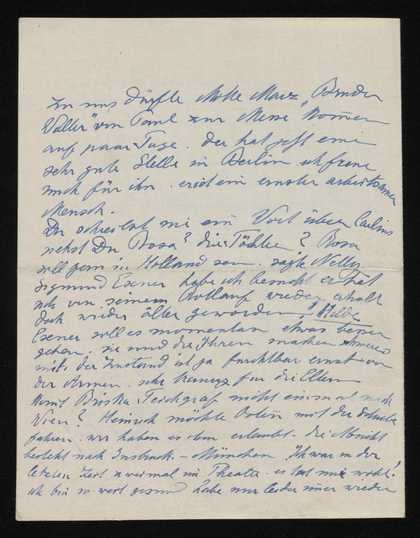 Zu uns dürfte Mitte März "Bruder
Walter" von Paul zur Messe kommen
auf paar Tage. Der hat jetzt eine
sehr gute Stelle in Berlin ich freue
mich für ihn. er ist ein ernster arbeitsamer
Mensch.
Du schreibst mir ein Wort über
siehst Du Rosa? die Töchter? Rosa
soll gern in Holland sein. sagte Nelly
Sigmund habe ich besucht er hat
sich von seinem wieder erholt
doch wieder älter geworden.
soll es momentan etwas besser
gehen, sie und die Ihren machen
mit, der Zustand ist ja furchtbar ernst von
der Armen. sehr traurig für die Eltern
Teichgraf nicht einmal nach
Wien? Heinrich möchte Ostern mit der Schule
fahren. wir haben es ihm erlaubt. die Absicht
besteht nach Insbruck - München. Ich war in der
letzten Zeit zweimal im Theater. es tat mir wohl!
ich bin so weit gesund habe nur leider immer wieder